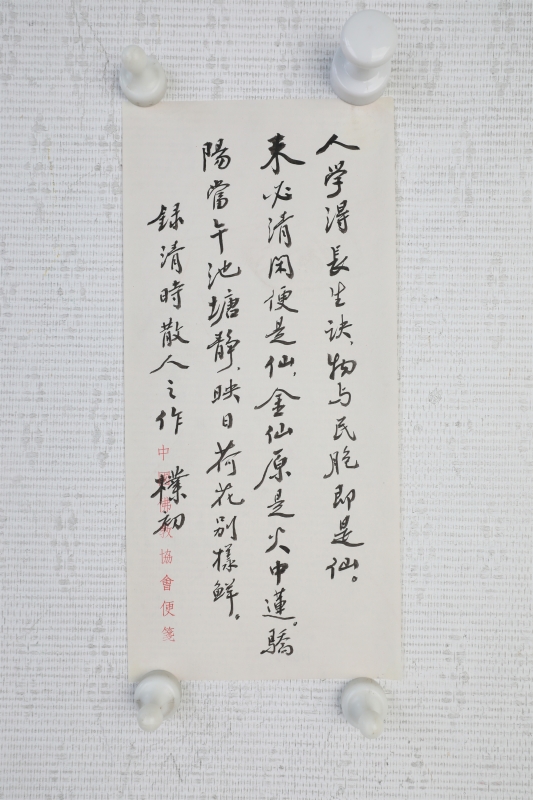 人学得長生诀、物与民胞即是仙。
未必清闲便是仙、金仙原是火中蓮。驕
陽當午池塘静、映日荷花别樣鲜。
録清時散人之作 樸初
中國佛教協會便箋